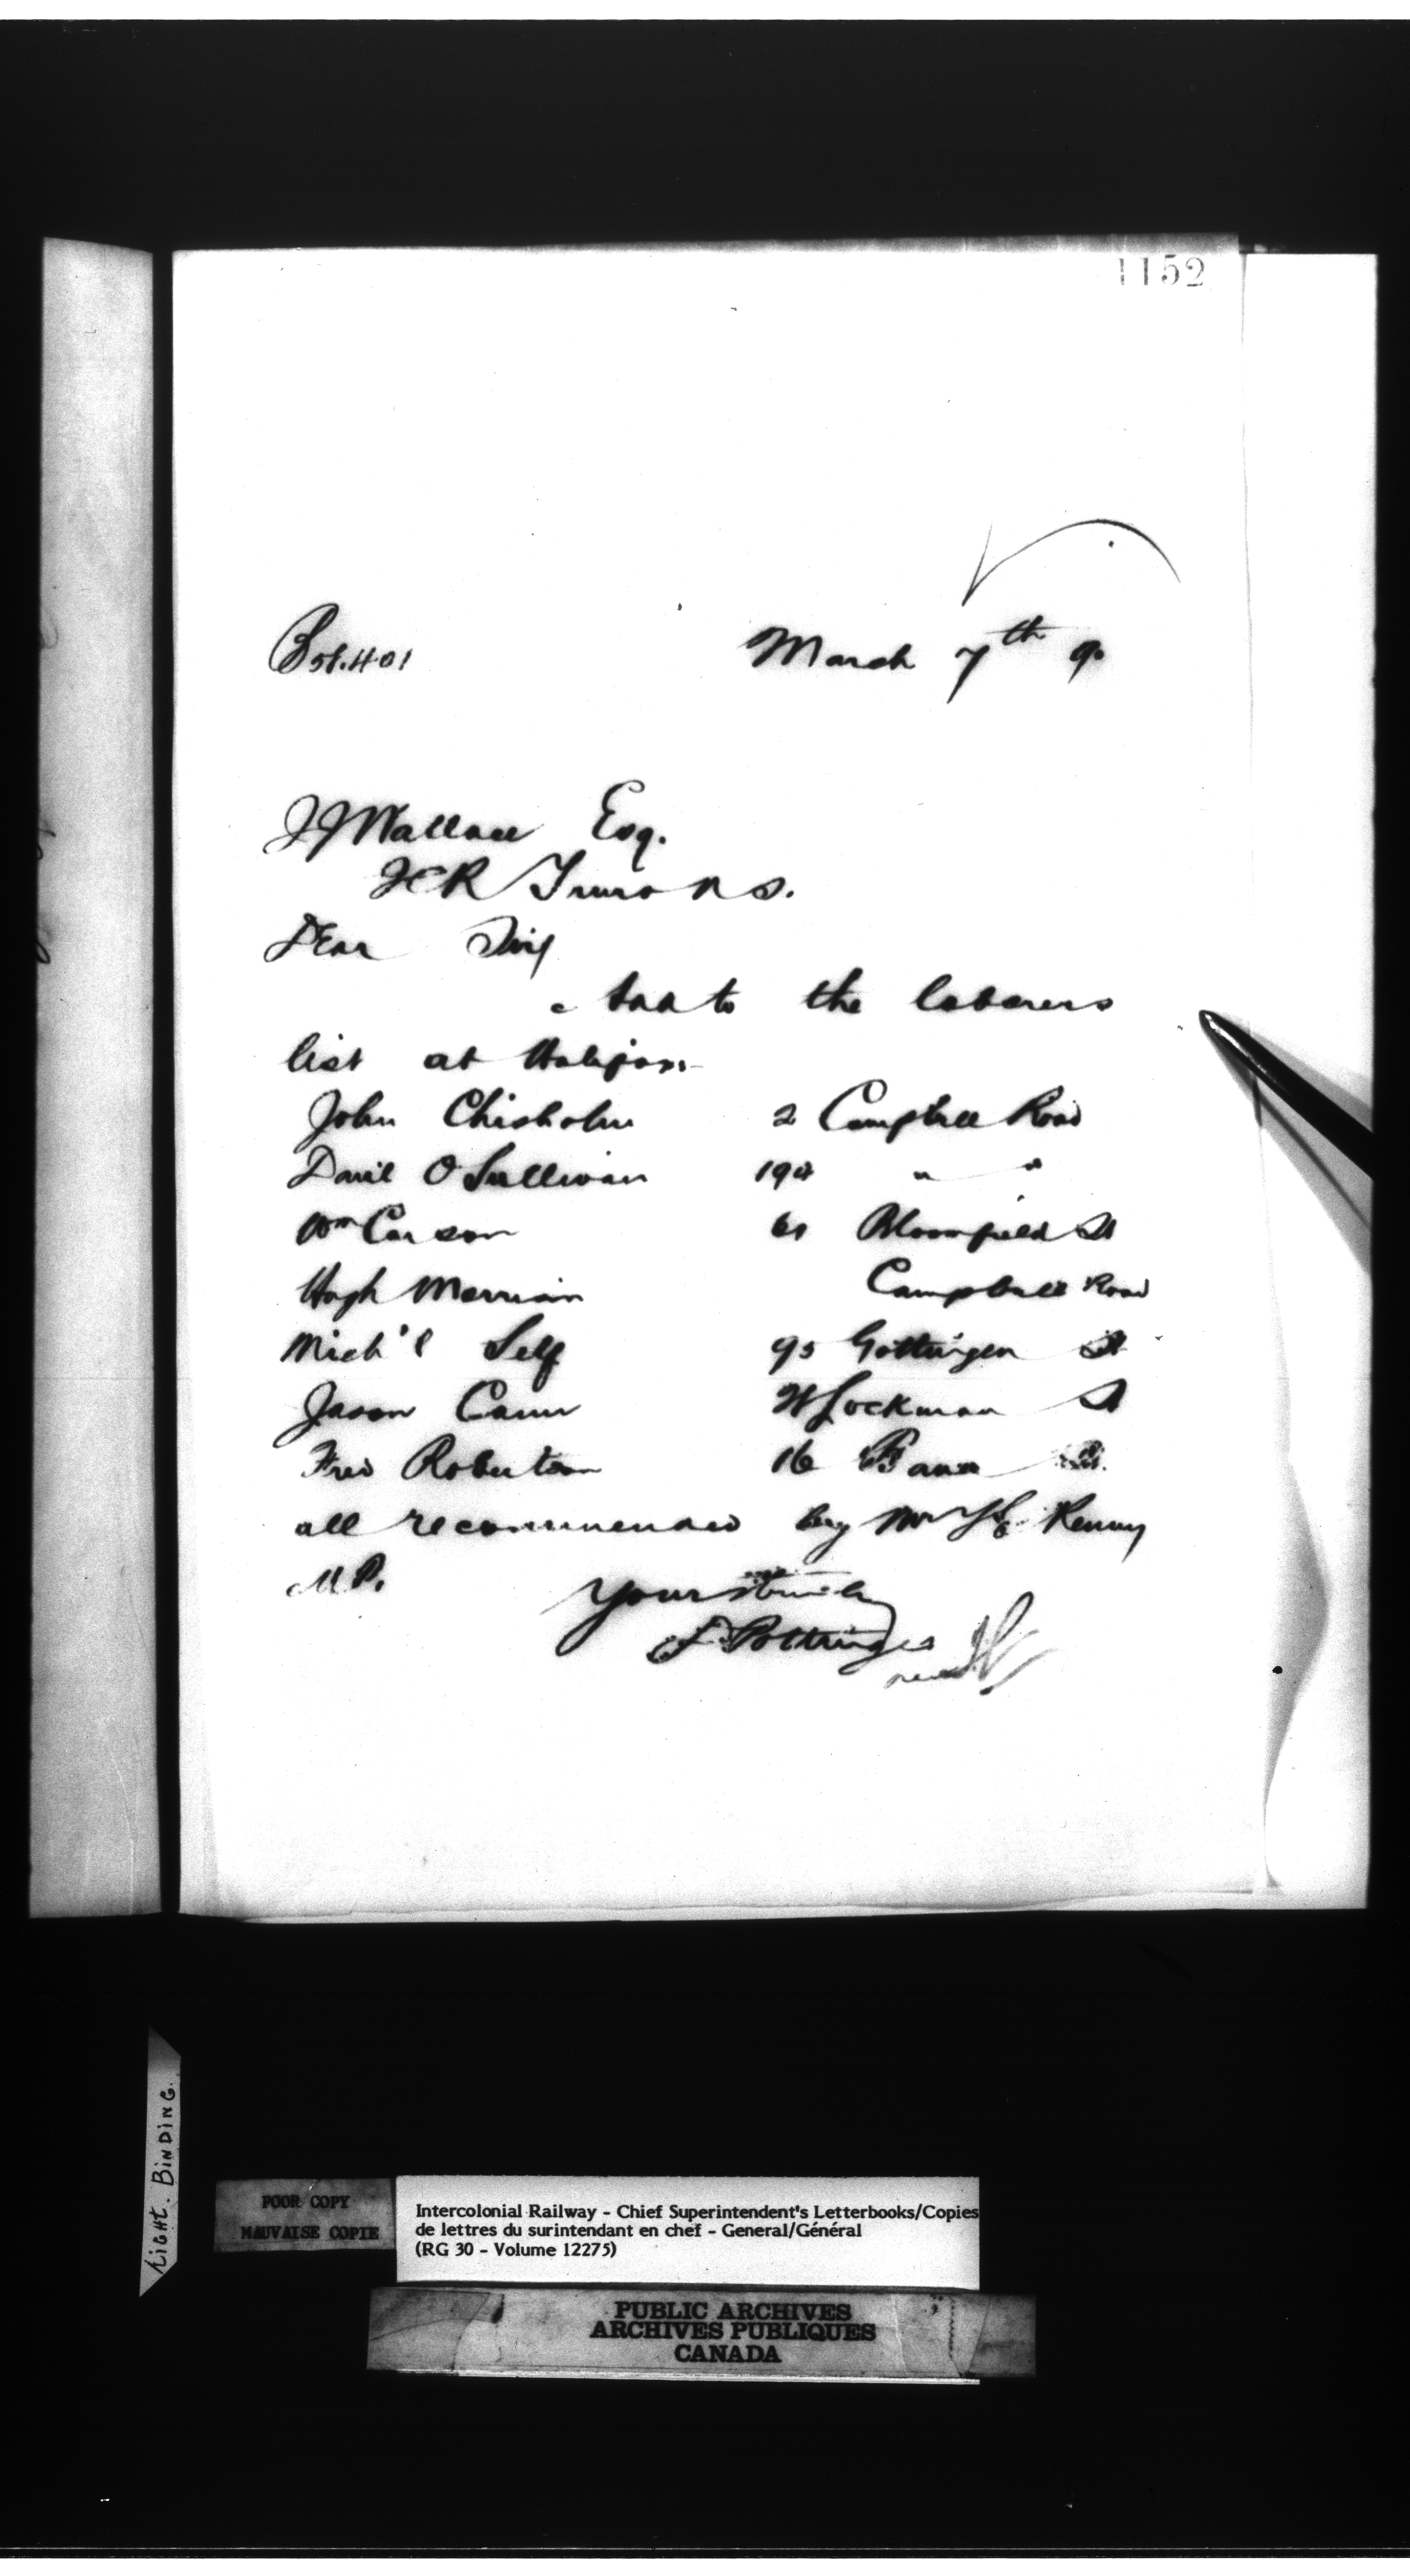 1152
March 7th 90
J J Wallace Esq.
ICR Truro N S.
Dear Sir
Add to the laborers
list at Halifax
John Chisholm 2 Campbell Road
David O Sullivan 194 " "
Wm Carson 61 Bloomfield St
Hugh Merriam Campbell Road
Mich'l Self 95 Gottingen St
Jason Cann Lockman St
Fred Robertson 16
all recommended by Mr T E Kenny
M P.
Yours truly
D Pottinger
TIGHT. BINDING.
POOR COPY
MAUVAISE COPIE
Intercolonial Railway - Chief Superintendent's Letterbooks/Copies
de lettres du surintendant en chef - General/Général
(RG 30 - Volume 12275)
PUBLIC ARCHIVES
ARCHIVES PUBLIQUES
CANADA